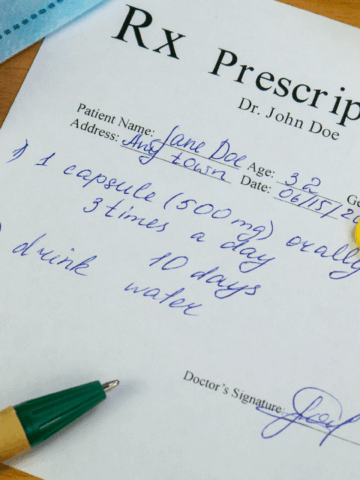 Rx Prescrip
Dr. John Doe
Patient Name: Jane Doe Age: 32 Ge
Address: Any town Date: 06/15/20
1) 1 capsule (500mg) orally
3 times a day
10 days
) drink water
Doctor's Signature: